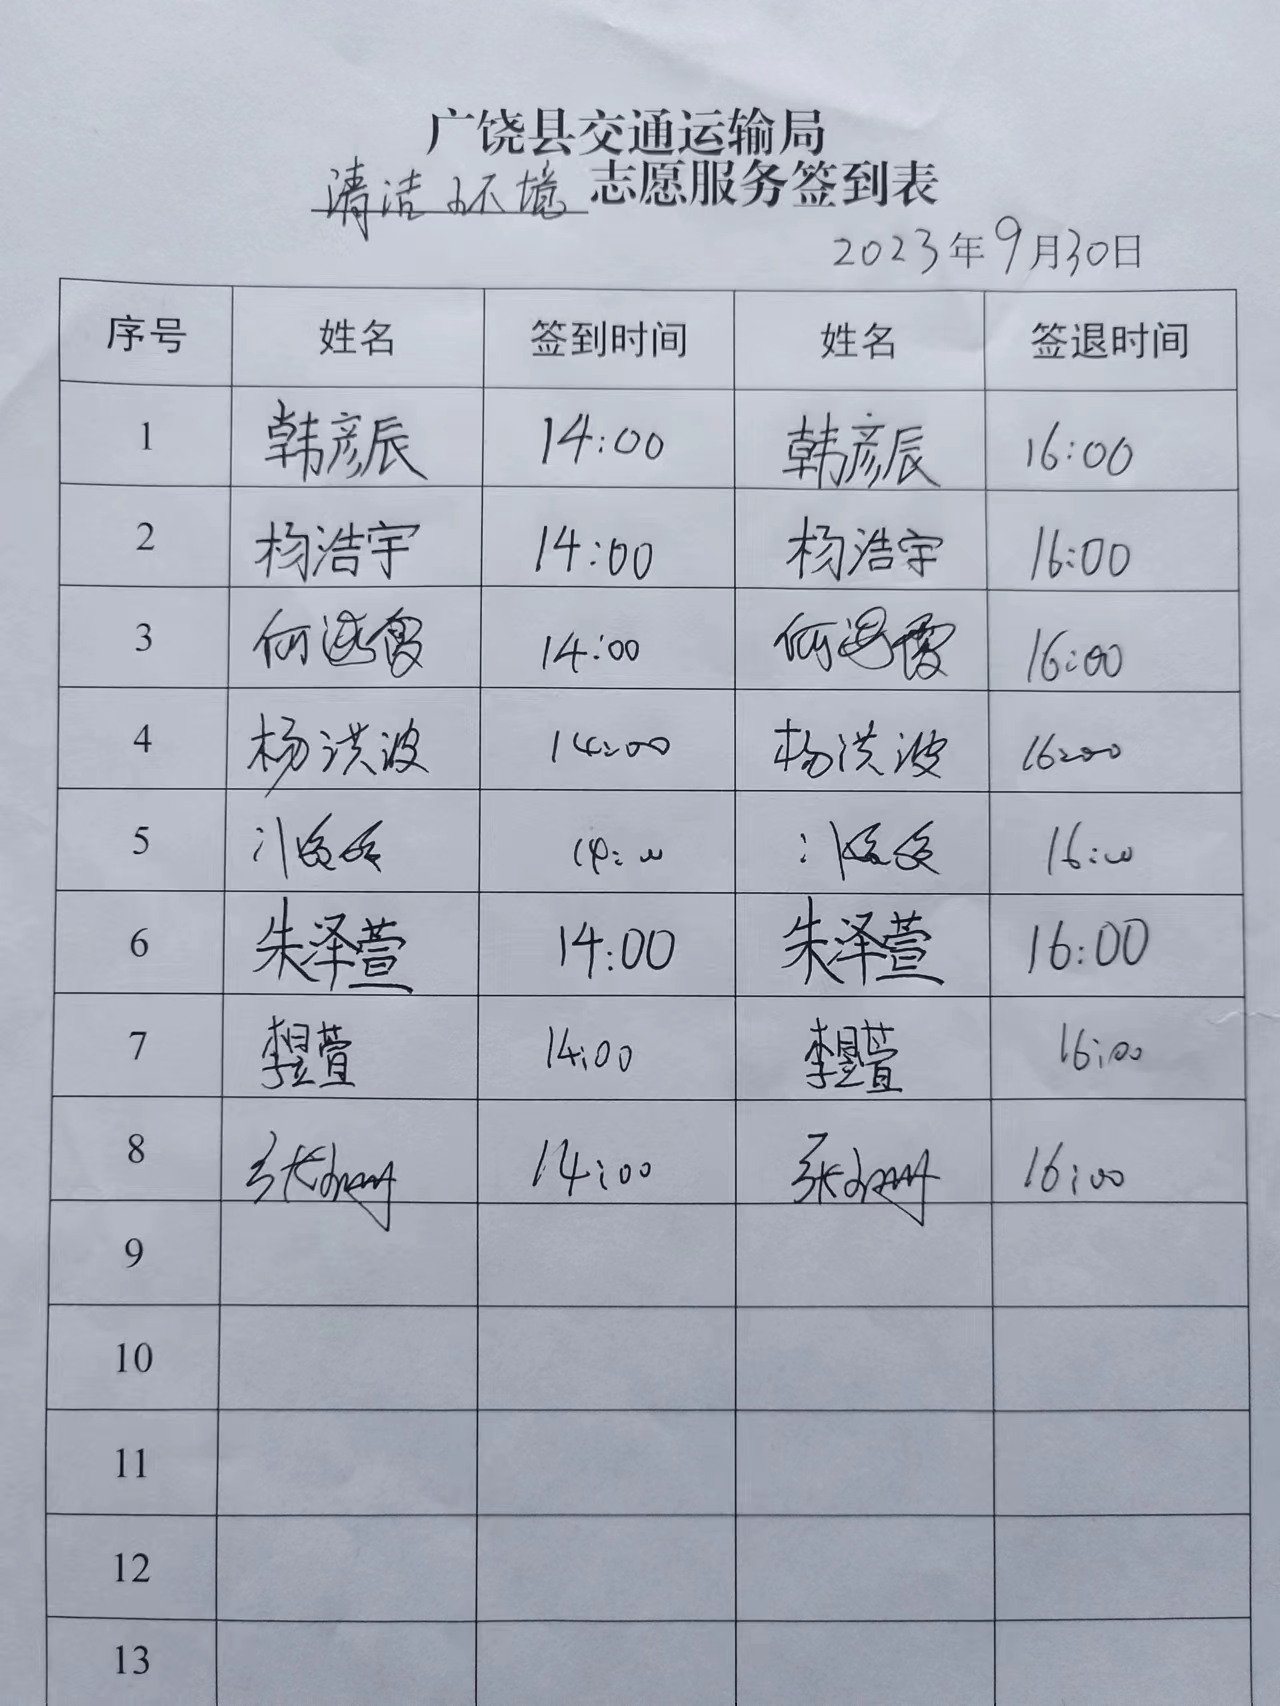 广饶县交通运输局
清洁环境 志愿服务签到表
2023年9月30日
序号 姓名 签到时间 姓名 签退时间
1 韩彦辰 14:00 韩彦辰 16:00
2 杨浩宇 14:00 杨浩宇 16:00
3 何 14:00 何 16:00
4 杨洪波 14:00 杨洪波 16:00
5 14:00 16:00
6 朱泽萱 14:00 朱泽萱 16:00
7 李昱萱 14:00 李昱萱 16:00
8 张 14:00 张 16:00
9
10
11
12
13